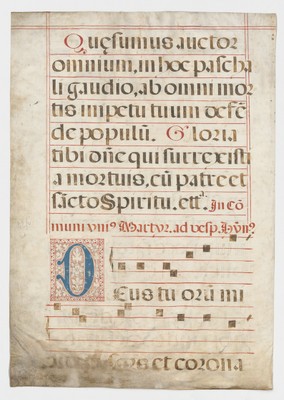 Quęsumus auctor
omnium, in hoc pascha
li gaudio, ab omni mor
tis impetu tuum defẽ
de populũ. Gloria
tibi dñe qui surrexisti
a mortuis, cũ patre et
sãcto Spiritu. et
In Cõ
muni uniꝰ Martyr. ad vesp. Hỹnꝰ
Deus tu orũ mi
et corona